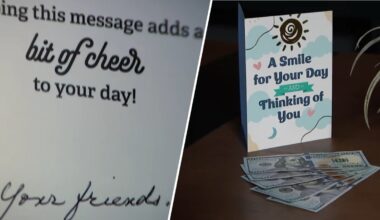 ing this message adds a
bit of cheer
to your day!
Your friends.
A Smile
for Your Day
AND
Thinking of
You